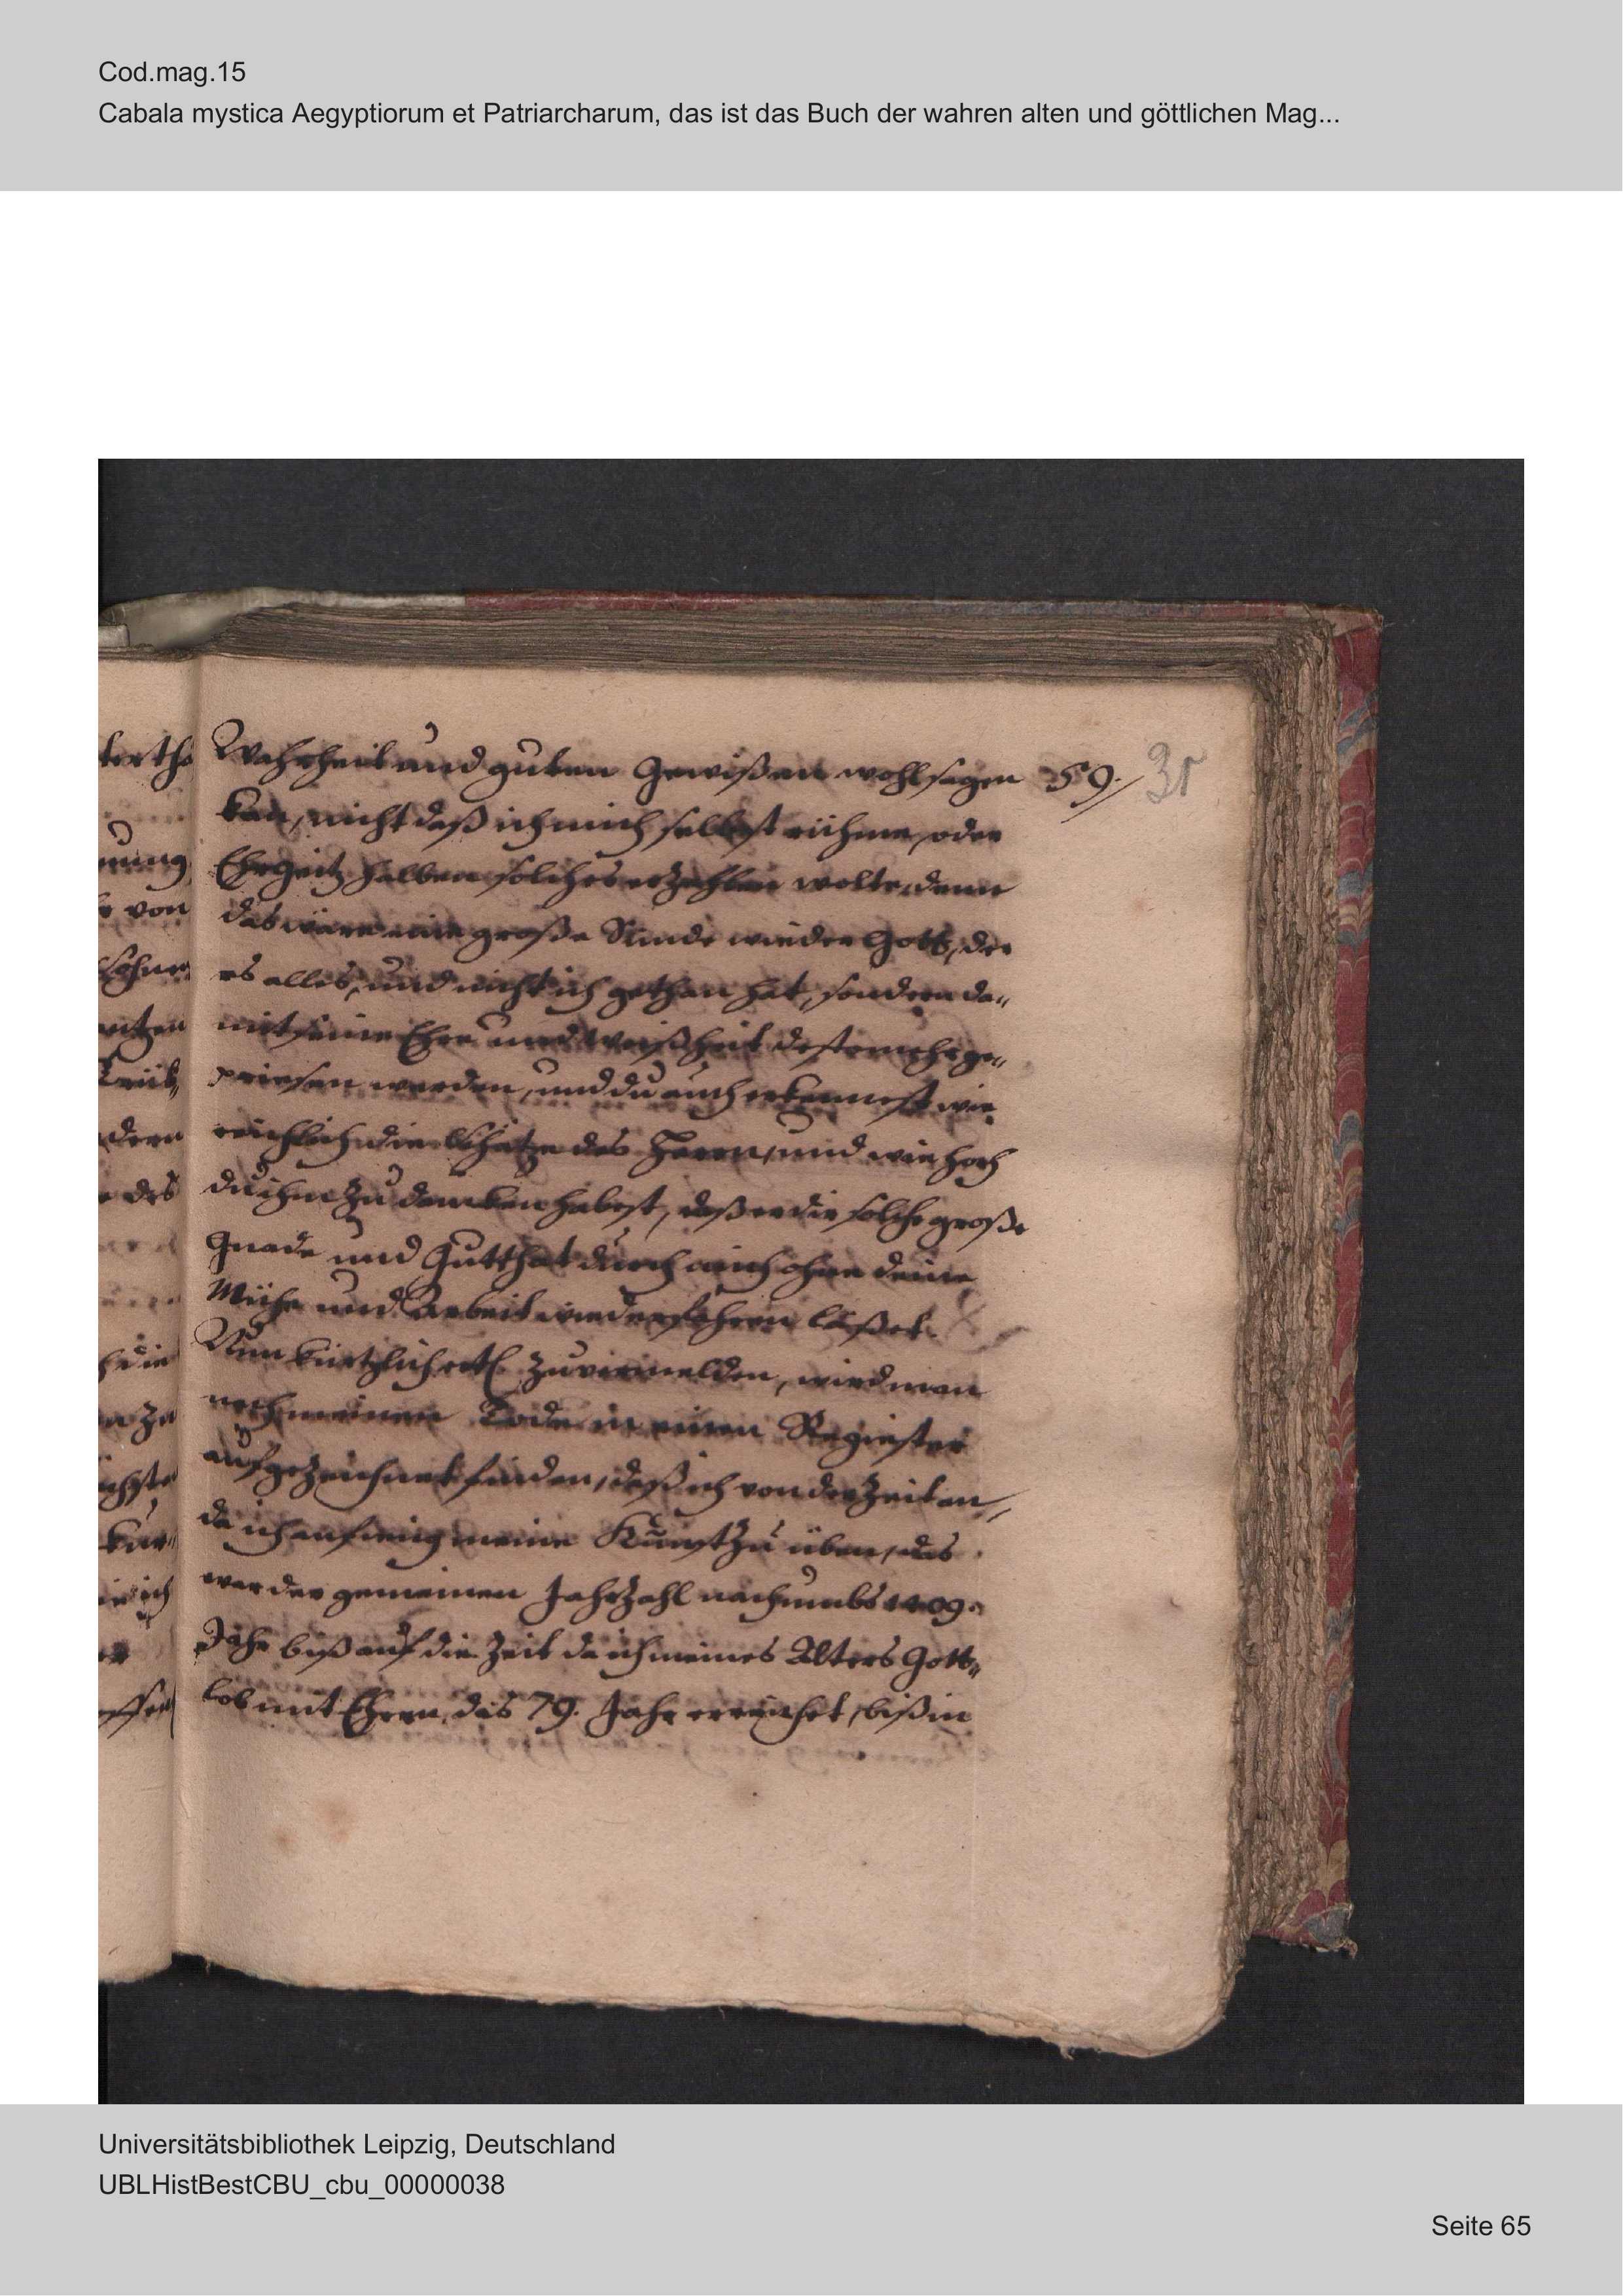 Cod.mag.15
Cabala mystica Aegyptiorum et Patriarcharum, das ist das Buch der wahren alten und göttlichen Mag...
Wahrheit und guten Gewißen wohl sagen 59.
31
kan, nicht daß ich mich selbst rühme, oder
Ehrgeitz halben solches erzehlen wolte, denn
das wäre eine große Sünde wieder Gott, der
es alles, und nicht ich gethan hat, sondern da„
mit seine Ehre und Weißheit desto mehr ge„
priesen werden, und du auch erkennest wie
reichlich die Schätze des Herrn, und wie hoch
du ihm zu dancken habest, daß er dir solche große
Gnade und Gutthat durch mich ohne deine
Mühe und Arbeit wiederfahren läßet.
Nun kürtzlich zu vermelden, wird man
nach meinem Tode in einem Regiester
aufgezeichnet finden, daß ich von der Zeit an,
da ich anfieng meine Kunst zu üben, das
war der gemeinen Jahrzahl nach umbs 1409.
Jahr biß auf die Zeit da ich meines Alters Gott„
lob mit Ehren, das 79. Jahr erreichet, biß in
tertha
nung
von
dern
des
die
ich
Universitätsbibliothek Leipzig, Deutschland
UBLHistBestCBU_cbu_00000038
Seite 65